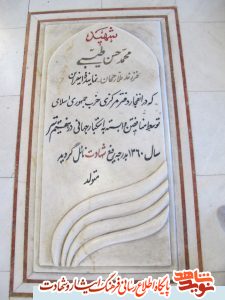 شهید
محمد حسن طیبی
فرزند غلامرحمان نماینده اسفراین
که در انفجار دفتر مرکزی حزب جمهوری اسلامی
توسط منافقین وابسته به استکبار جهانی در هفتم تیر
سال ۱۳۶۰ بدرجه رفیع شهادت نائل گردید
متولد
نوید شاهد
پایگاه اطلاع رسانی فرهنگ ایثار و شهادت